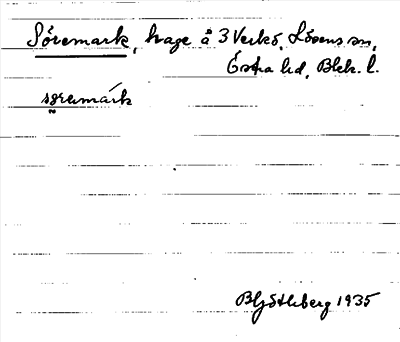 Söremark, hage å 3 Verkö, Lösens sn,
Östra hd, Blek. l.
sɶremárk
B Götlind 1935